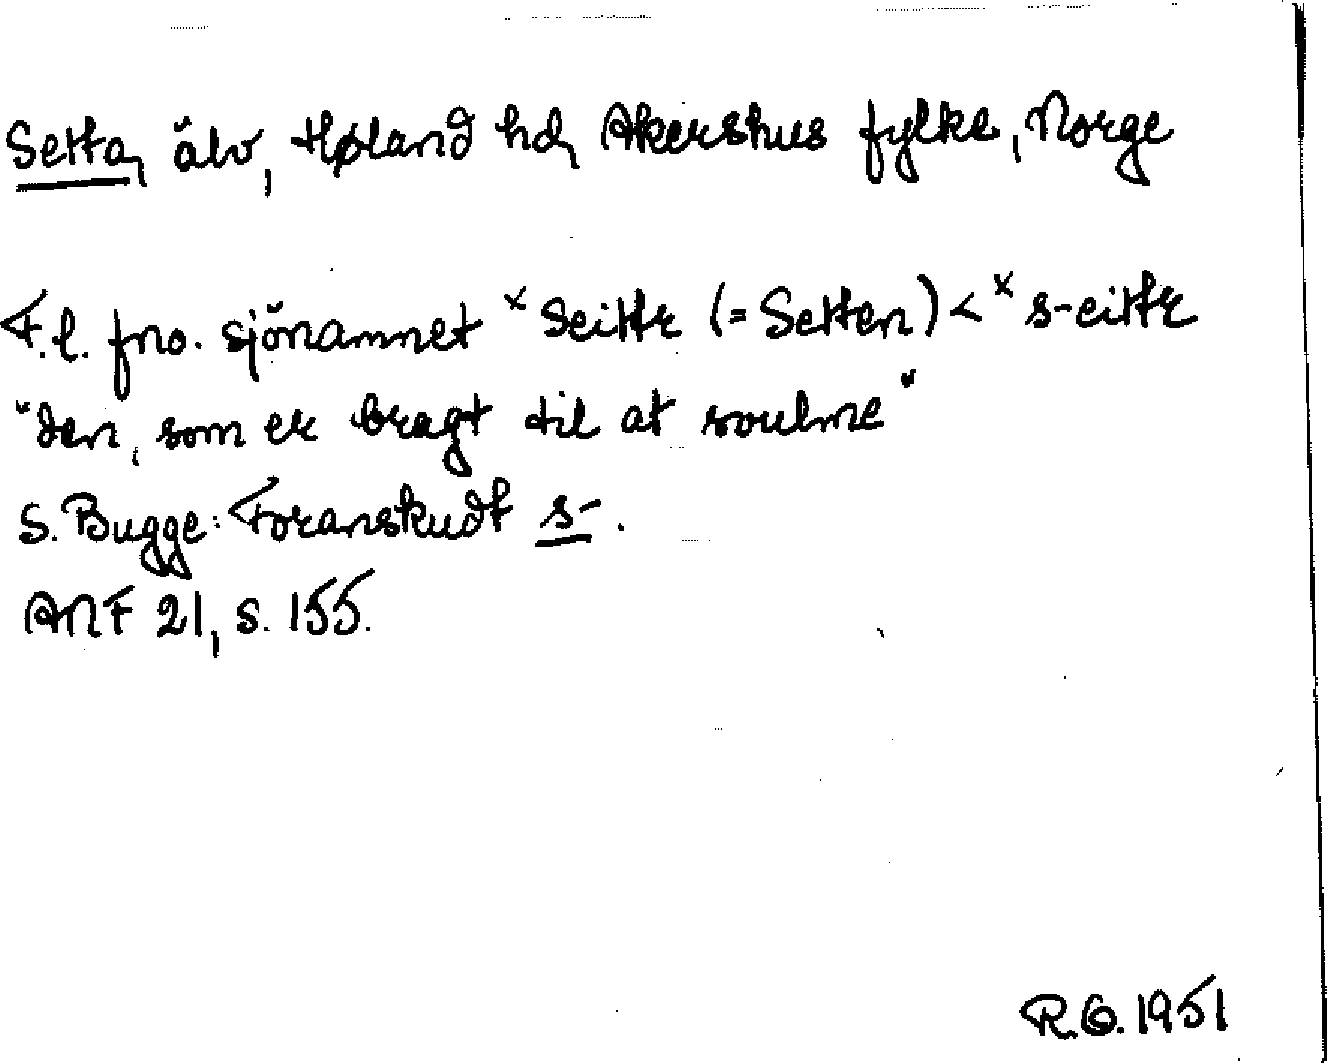 Setta, älv, Høland hd, Akershus fylke, Norge
F.l. fno. sjönamnet ˣSeittr (= Setten) < ˣs-eittr
"den, som er bragt til at svulme"
S. Bugge: Foranskudt s-.
ANF 21, s. 155.
R.G. 1951